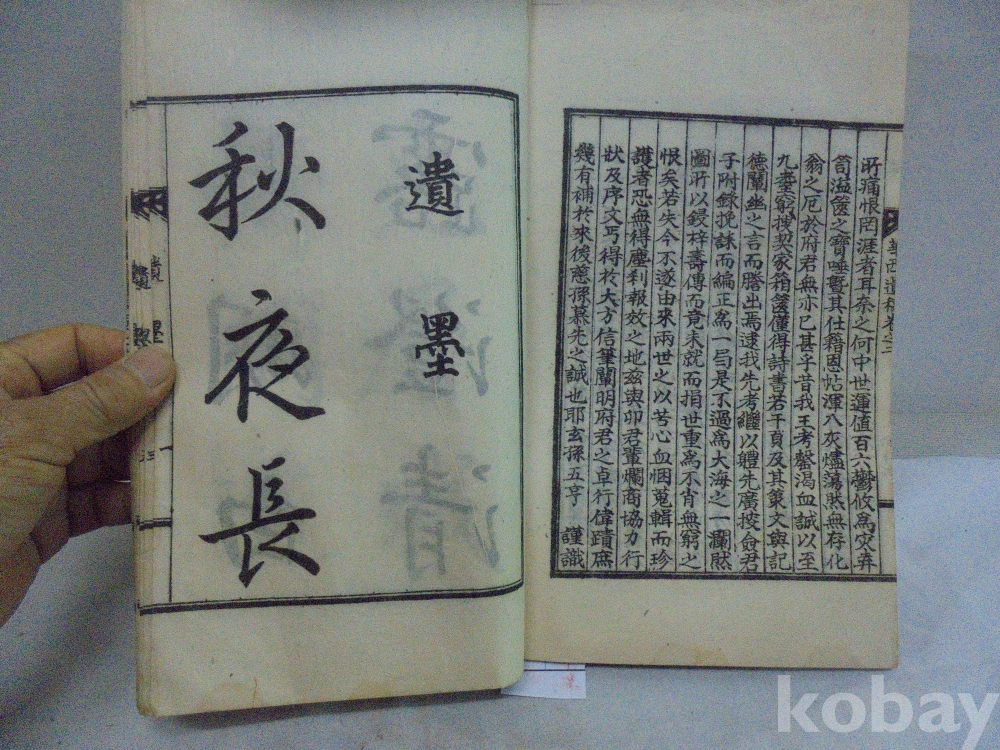 所痛恨罔涯者耳奈之何中世運值百六鬱攸爲灾弆
笥溢篋之寶唾曁其仕籍恩帖渾入灰燼蕩然無存化
翁之厄於府君無亦已甚乎昔我王考罄渴血誠以至
九臺窮搜契家箱篋僅得詩書若干頁及其策文與記
德闡幽之言而謄出焉逮我先考繼以軆先廣按僉君
子附錄挽誄而編正爲一弓是不過爲大海之一瀾然
圖所以鋟梓壽傳而竟未就而捐世重爲不肖無窮之
恨矣若失今不遂由來兩世之以苦心血悃蒐輯而珍
護者恐無得塵利報效之地玆與卯君輩爛商協力行
狀及序文丐得於大方信筆闡明府君之卓行偉蹟庶
幾有補於來後慈孫慕先之誠也耶玄孫五亨 謹識
華西遺稿卷之
遺墨
秋夜長
遺墨
kobay